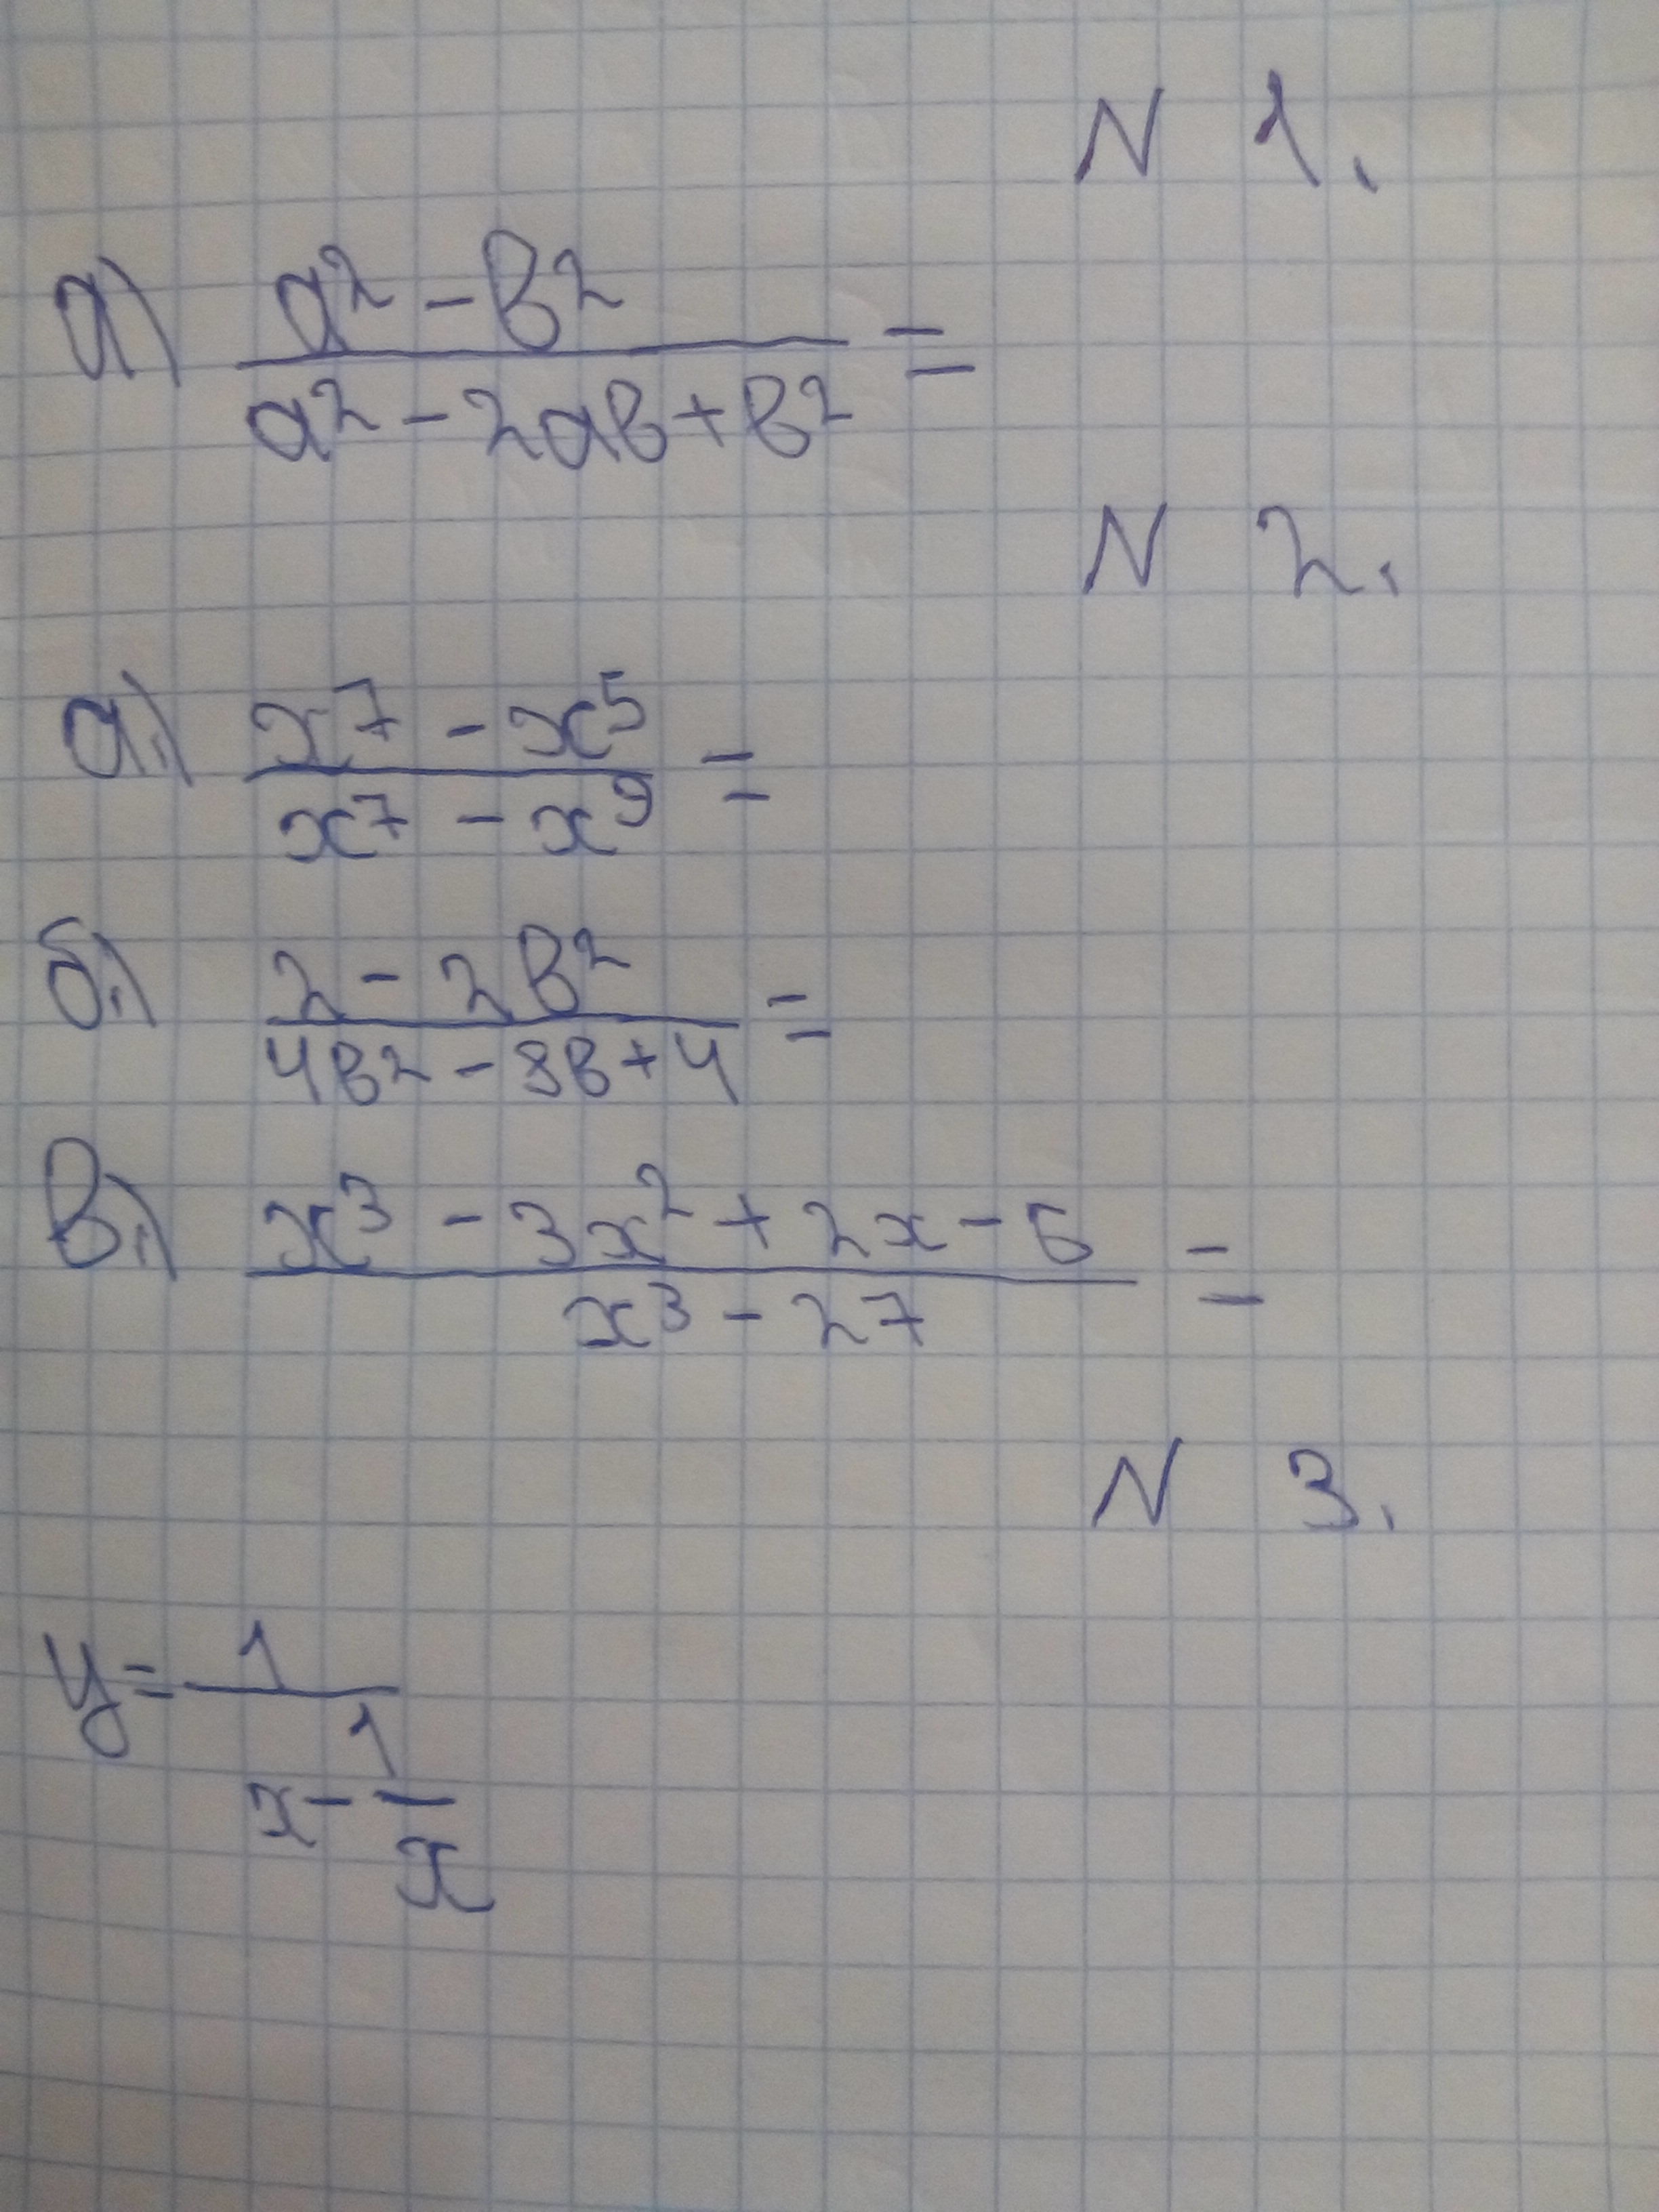 N 1.
а) (a² - b²)/(a² - 2ab + b²) =
N 2.
а.) (x⁷ - x⁵)/(x⁷ - x⁹) =
б.) (2 - 2b²)/(4b² - 8b + 4) =
в.) (x³ - 3x² + 2x - 6)/(x³ - 27) =
N 3.
y = 1/(x - 1/x)